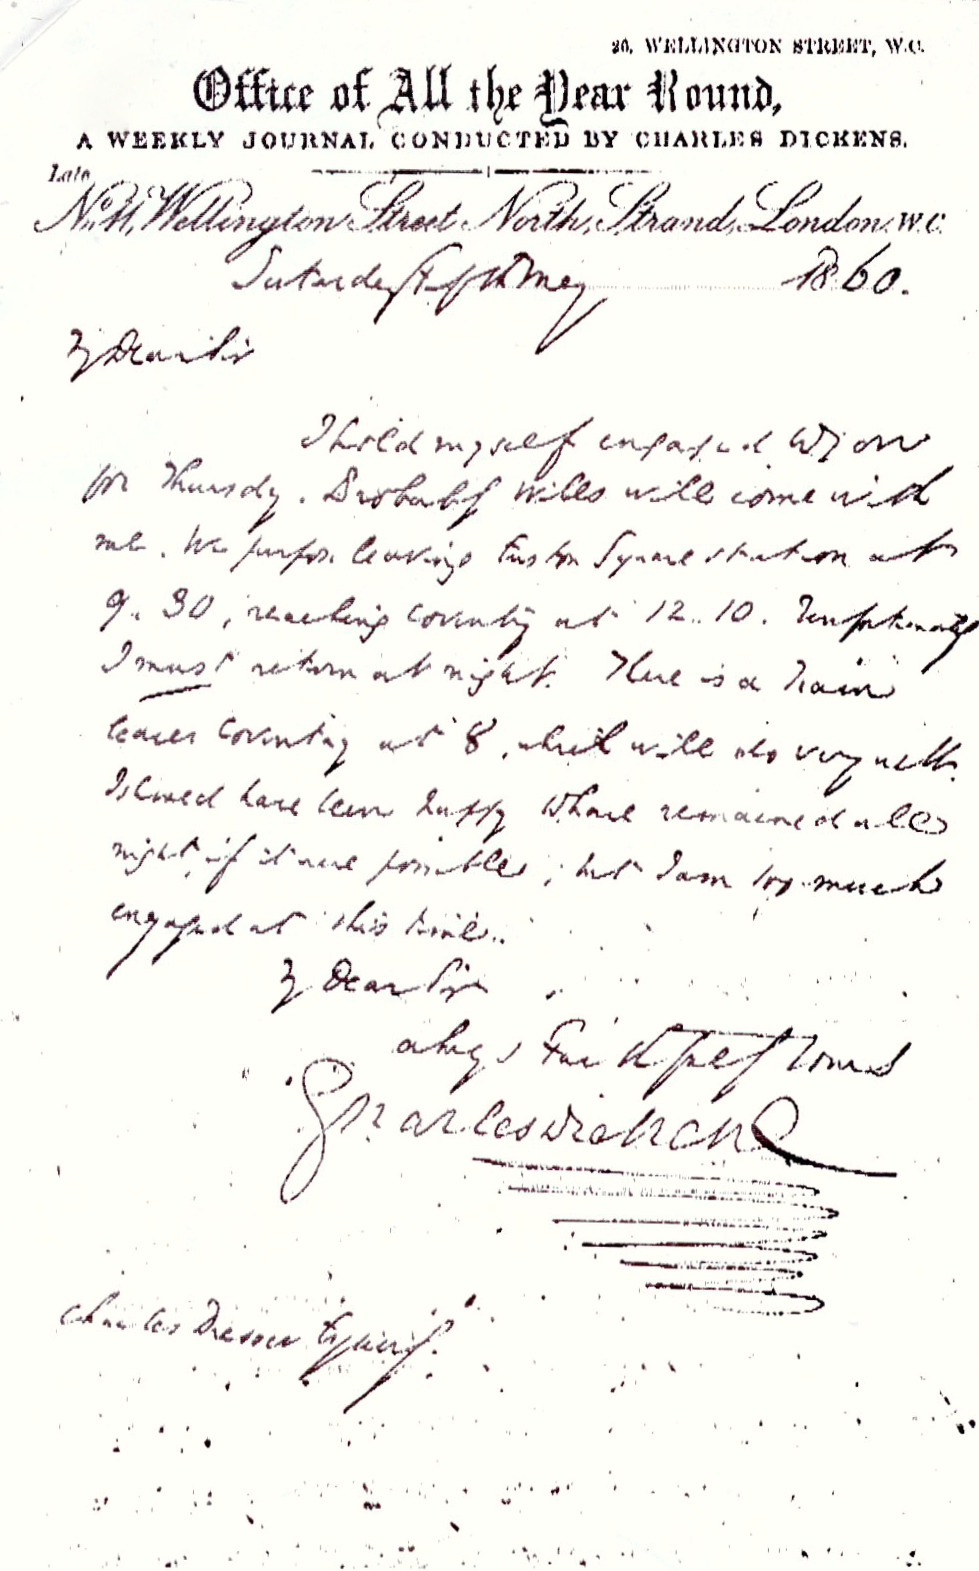 26, WELLINGTON STREET, W.C.
Office of All the Year Round,
A WEEKLY JOURNAL CONDUCTED BY CHARLES DICKENS.
Late
No. 11, Wellington Street North, Strand, London. W.C.
Saturday Fifth May 1860.
My Dear Sir
I hold myself engaged to you
for Thursday. Probably Wills will come with
me. We purpose leaving Euston Square station at
9.30, reaching Coventry at 12.10. Unfortunately
I must return at night. There is a Train
leaves Coventry at 8, which will do very well.
I should have been happy to have remained all
night, if it were possible; but I am too much
engaged at this time.
My Dear Sir
always Faithfully Yours
Charles Dickens
Charles Dresser Esquire